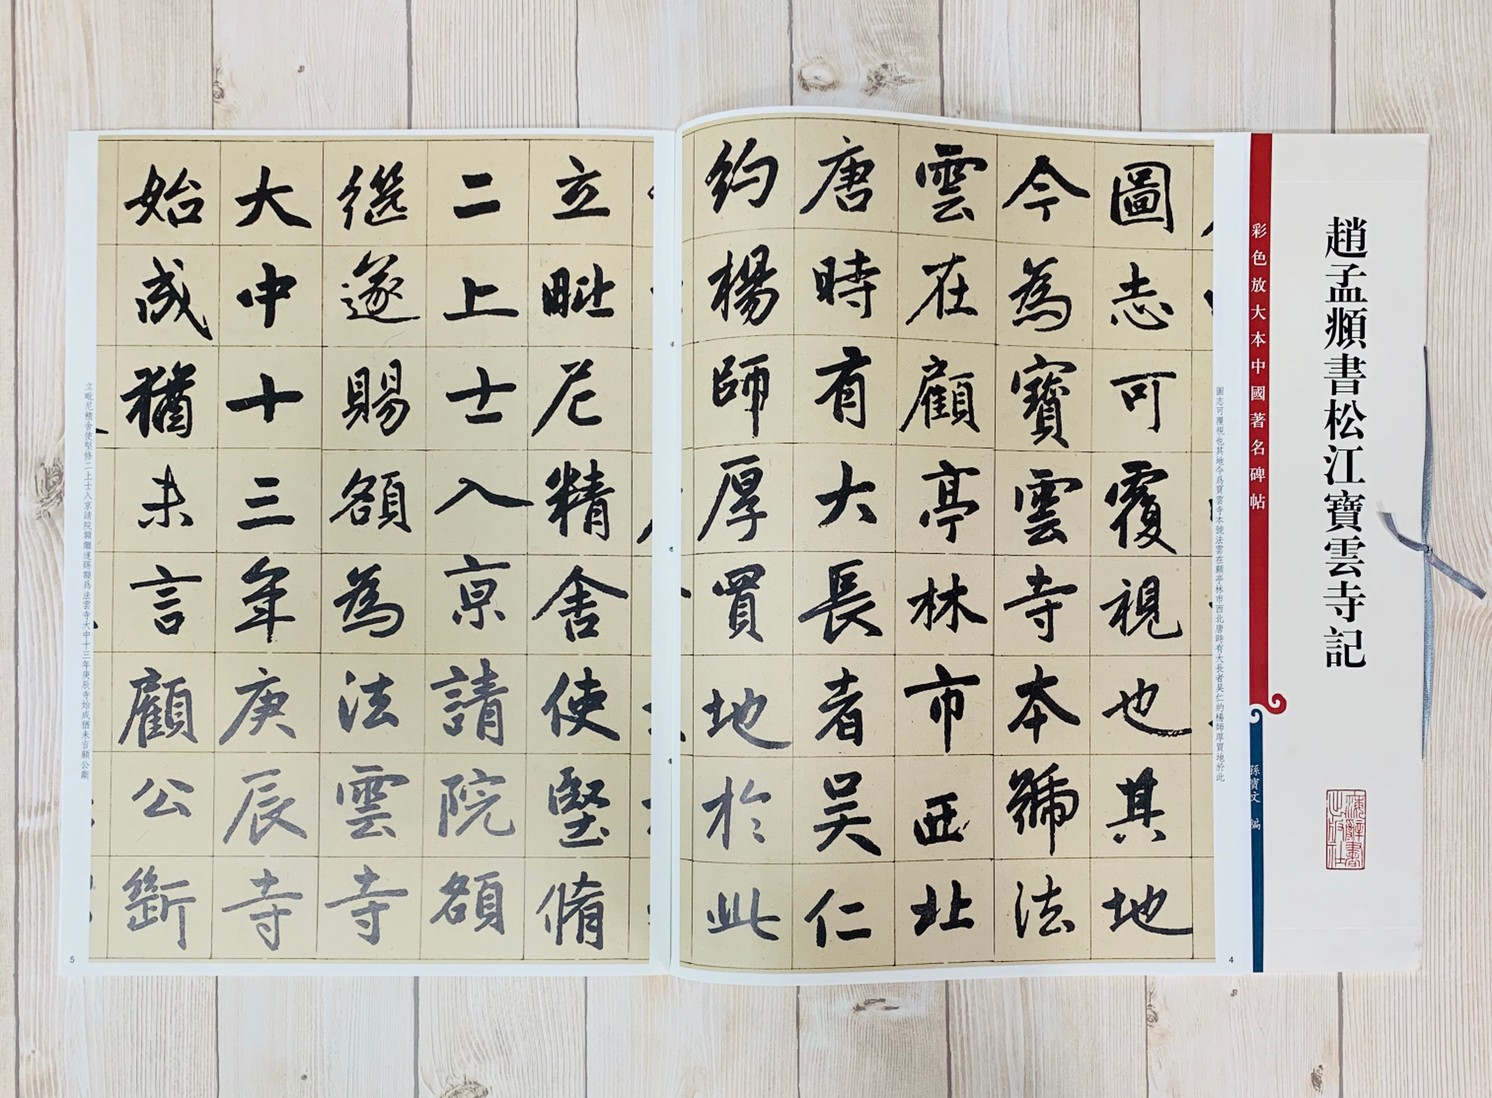 趙孟頫書松江寶雲寺記
彩色放大本中國著名碑帖
孫寶文 編
上海辭書出版社
圖志可覆視也其地今爲寶雲寺本號法雲在顧亭林市西北唐時有大長者吴仁約楊師厚買地於此
圖志可覆視也其地
今為寶雲寺本號法
雲在顧亭林市西北
唐時有大長者吴仁
約楊師厚買地於此
4
立毗尼精舍使堅脩
二上士入京請院額
繼遂賜額為法雲寺
大中十三年庚辰寺
始成猶未言顧公斷
立毗尼精舍使堅脩二上士入京請院額繼遂賜額爲法雲寺大中十三年庚辰寺始成猶未言顧公斷
5